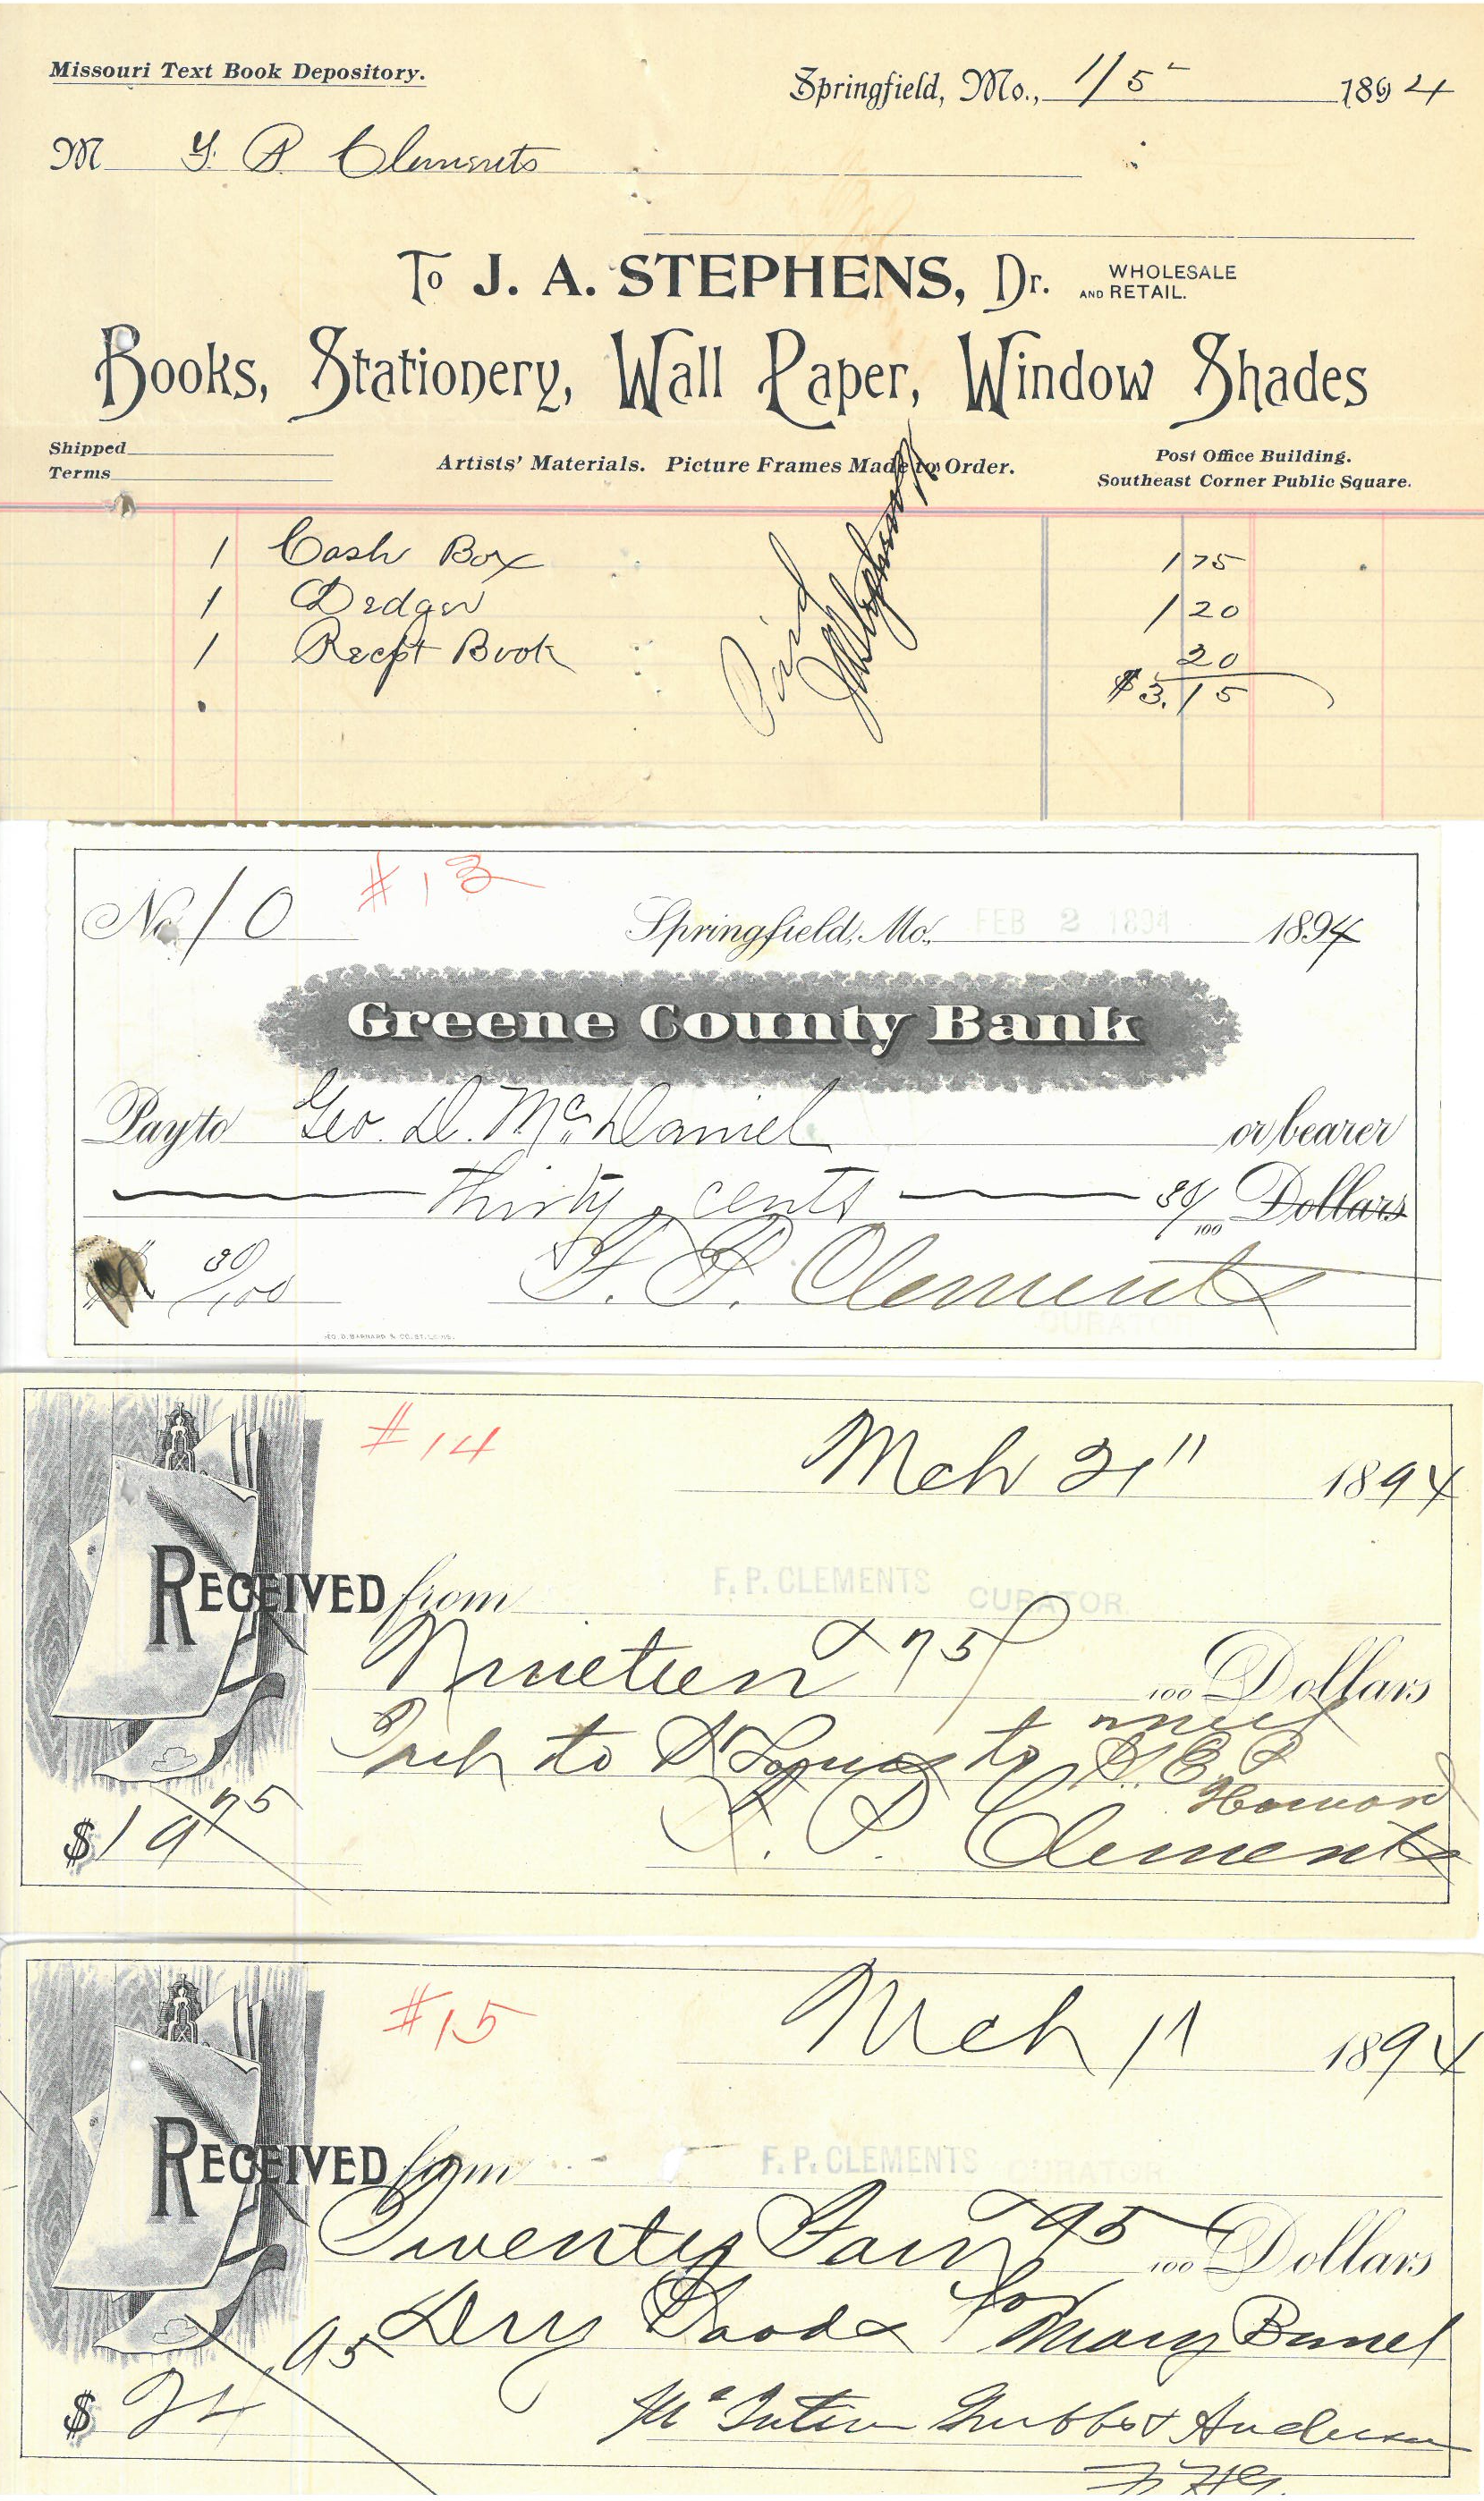 Missouri Text Book Depository.
Springfield, Mo., 1/5 1894
M Y. P. Clements
To J. A. STEPHENS, Dr. WHOLESALE AND RETAIL.
Books, Stationery, Wall Paper, Window Shades
Shipped
Terms
Artists' Materials. Picture Frames Made to Order.
Post Office Building.
Southeast Corner Public Square.
1 Cash Box 1 75
1 Ledger 1 20
1 Recpt Book 20
$3.15
Paid
J A Stephens
No. 10 #13
Springfield, Mo., FEB 2 1894 1894
Greene County Bank
Pay to Geo. D. McDaniel or bearer
thirty cents 30/100 Dollars
$ 30/100 F. P. Clements
CURATOR
GEO. D. BARNARD & CO. ST. LOUIS.
#14 Mch 21" 1894
RECEIVED from F. P. CLEMENTS CURATOR
Nineteen & 75 100 Dollars
to St Louis to meet
S. E. P.
Howard
$19 75 F. P. Clements
#15 Mch 11 1894
RECEIVED from F. P. CLEMENTS CURATOR
Twenty Four & 95 100 Dollars
Dry Goods for Mary
$24.95